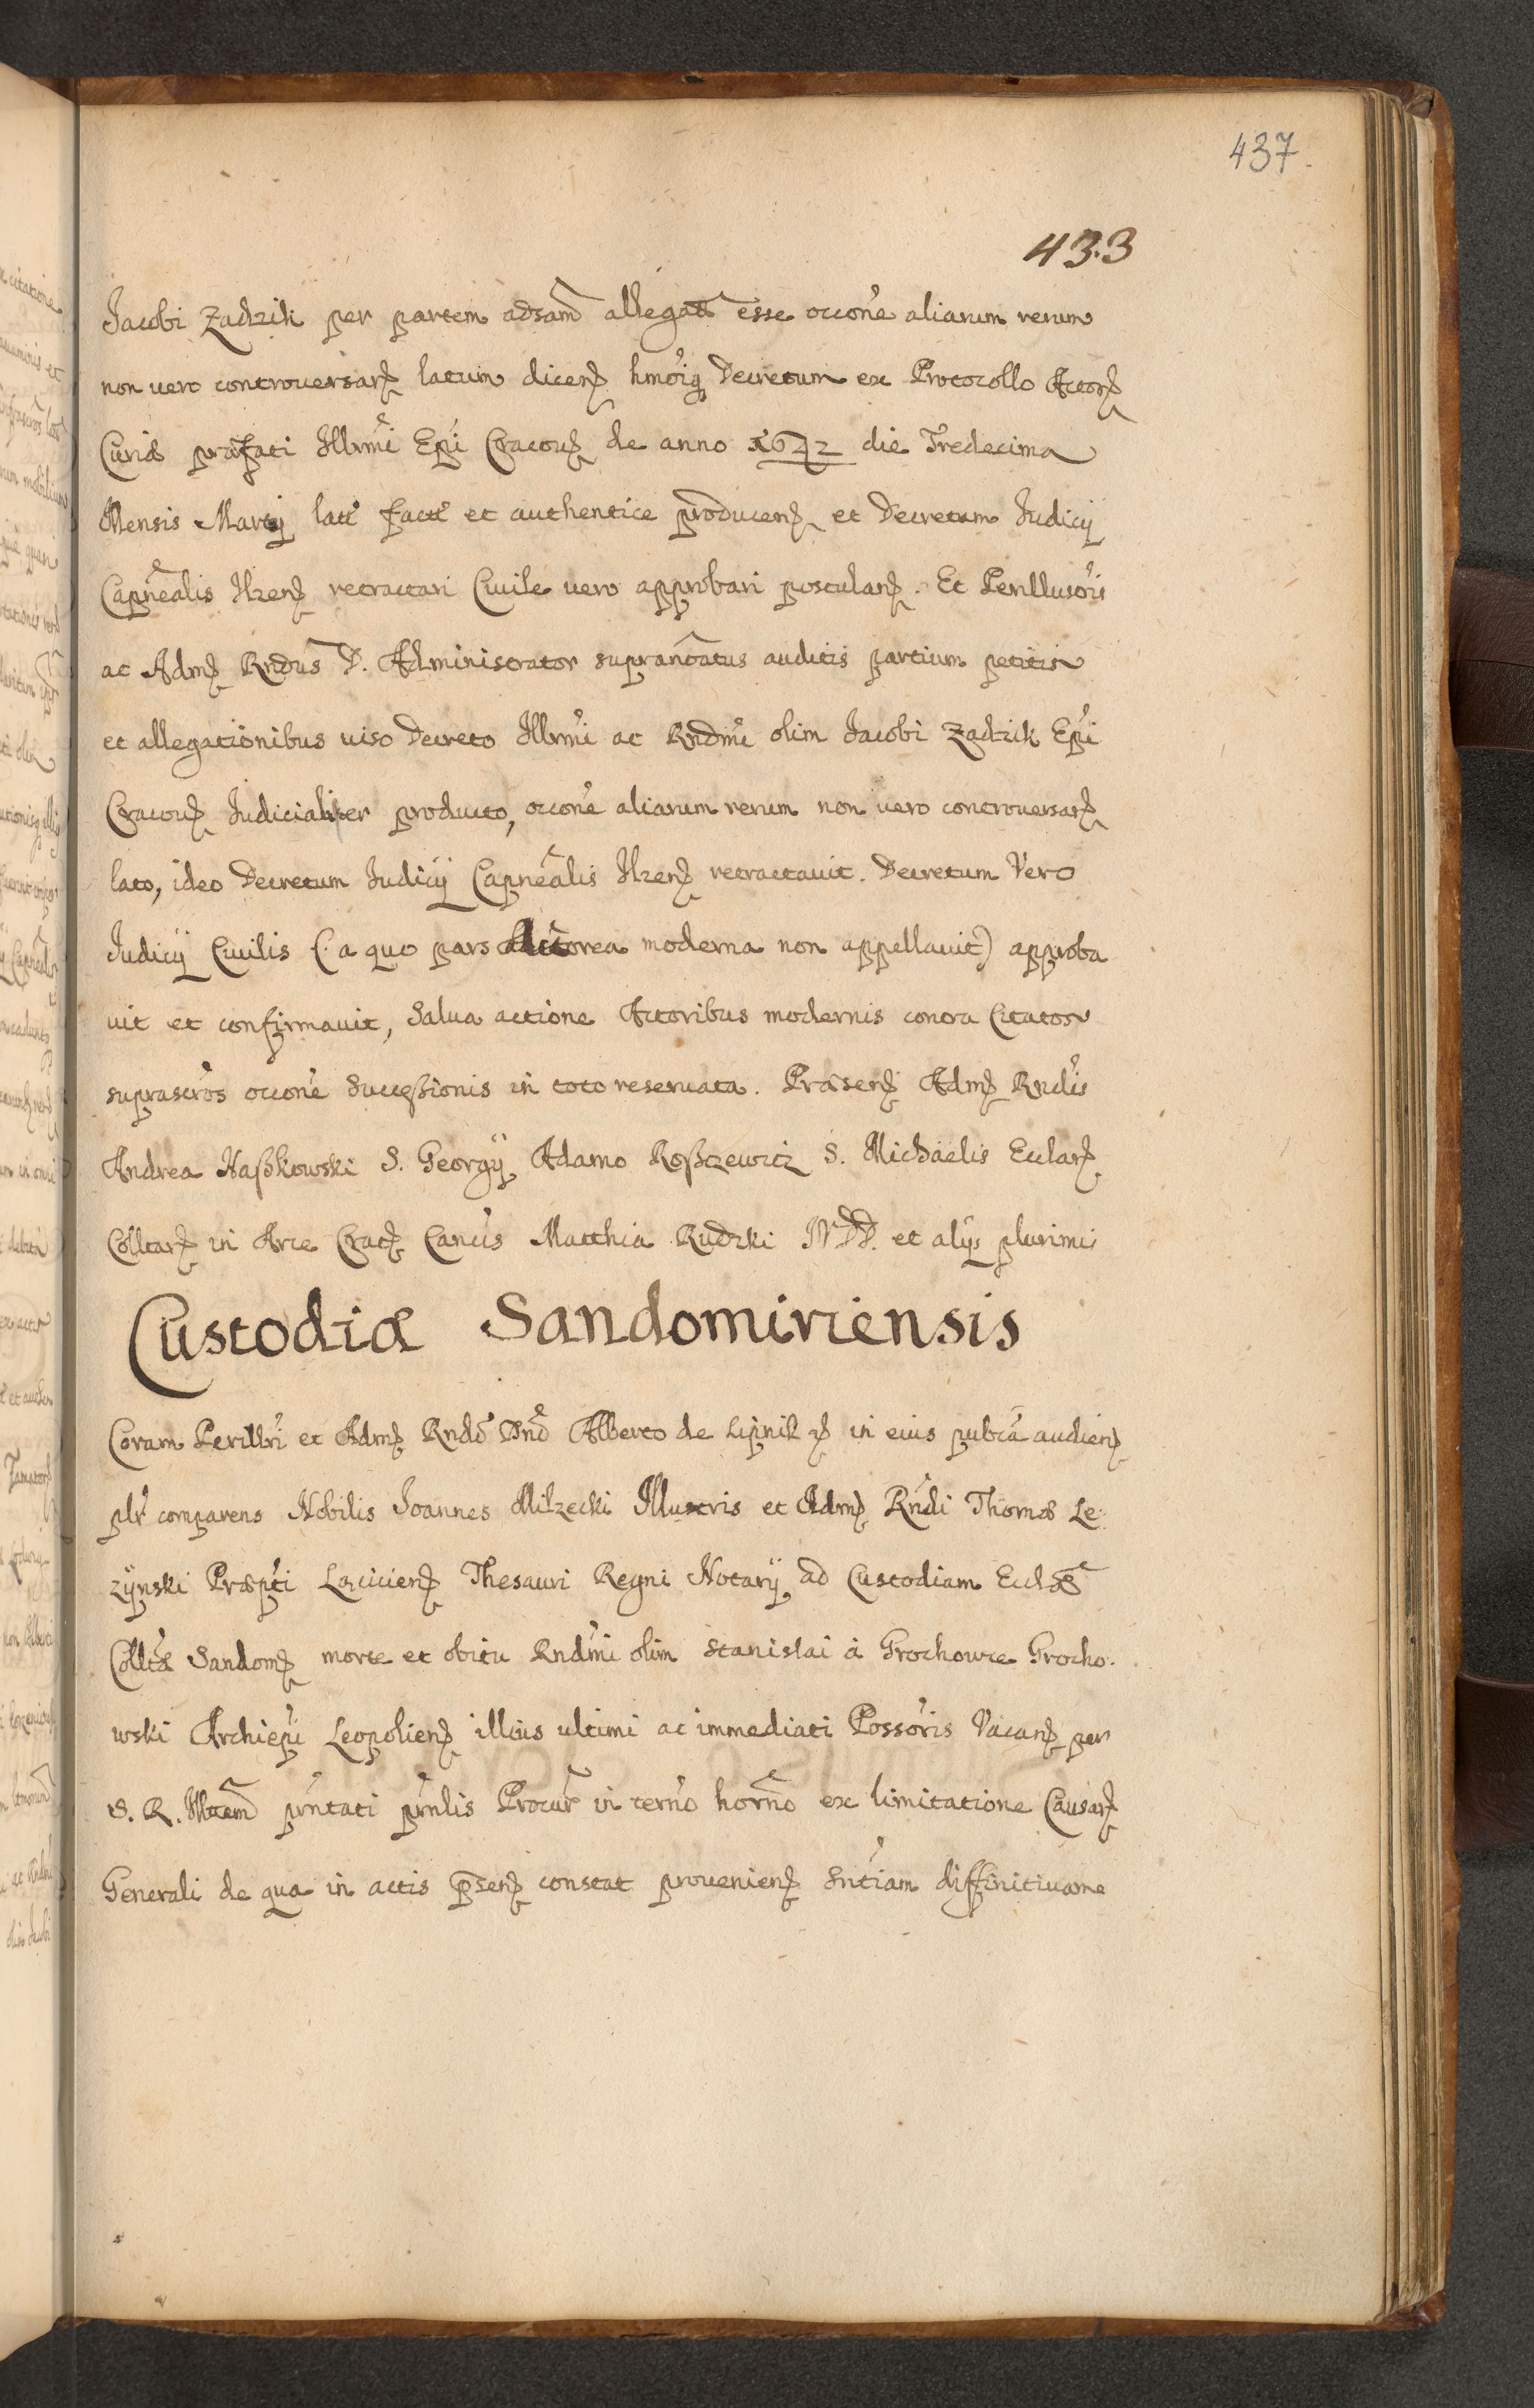 437.
433
Jacobi Zadzik per partem adsam allegatt esse occone aliarum rerum
non vero controversar latum dicen hmoiq Decretum ex Protocollo Actor
Curiæ præfati Illrmi Epi Cracou de anno 1642 die Tredecima
Mensis Martij latt factt et authentice producen et Decretum Judicij
Capnealis Ilzen retractari Ciuile uero approbari postulan. Et Perillusoris
ac Adm Rndus D. Administrator supranoatus auditis partium petitis
et allegationibus uiso Decreto Illrmi ac Rndmi olim Jacobi Zadzik Epi
Cracou Judicialiter producto, occone aliarum rerum non uero controuersar
lato, ideo Decretum Judicij Capnealis Ilzen retractauit. Decretum Vero
Judicij Ciuilis (a quo pars Actorea moderna non appellauit) approba
uit et confirmauit, Salua actione Actoribus modernis contra Citatos
suprascros occone Successionis in toto reseruata. Præsen Adm Rndis
Andrea Naszkowski S. Georgij Adamo Roszczewicz S. Michaelis Ecclar
Colltar in Arce Crac Cancis Matthia Rudzki N DD. et alijs plurimis
Custodiæ Sandomiriensis
Coram Perillri et Adm Rndo Dno Alberto de Lipnik in eius pubca audien
plr comparens Nobilis Joannes Milzecki Illustris et Adm Rndi Thomæ Le:
zynski Præpti Lacicien Thesauri Regni Notarij ad Custodiam Ecclæ
Colltæ Sandom morte et obitu Rndmi olim Stanislai à Grochowce Grocho:
wski Archiepi Leopolien illius ultimi ac immediati Possoris Vacan per
S. R. Mttem prntati prnlis Procur in termo horno ex limitatione Causar
Generali de qua in actis psen constat prouenien Sntiam diffinitiuam